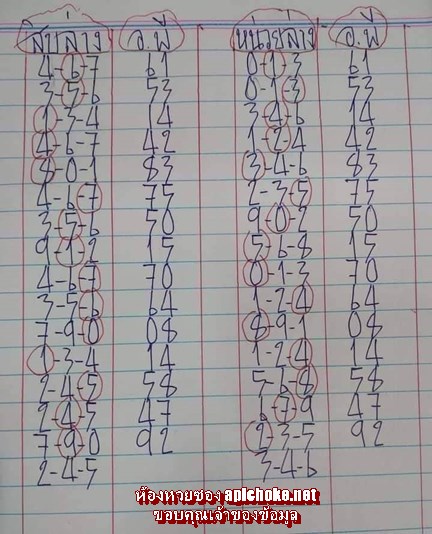 สิบล่าง อ.พี หน่วยล่าง อ.พี
4-6-7 61 0-1-3 61
3-5-6 53 0-1-3 53
1-3-4 14 3-4-6 14
4-6-7 42 1-2-4 42
8-0-1 83 3-4-6 83
4-6-7 75 2-3-5 75
3-5-6 50 9-0-2 50
9-1-2 15 5-6-8 15
4-6-7 70 0-1-3 70
3-5-6 64 1-2-4 64
7-9-0 08 8-9-1 08
1-3-4 14 1-2-4 14
2-4-5 58 5-6-8 58
2-4-5 47 6-7-9 47
7-9-0 92 2-3-5 92
2-4-5 3-4-6
ห้องหวยซอง apichoke.net
ขอบคุณเจ้าของข้อมูล